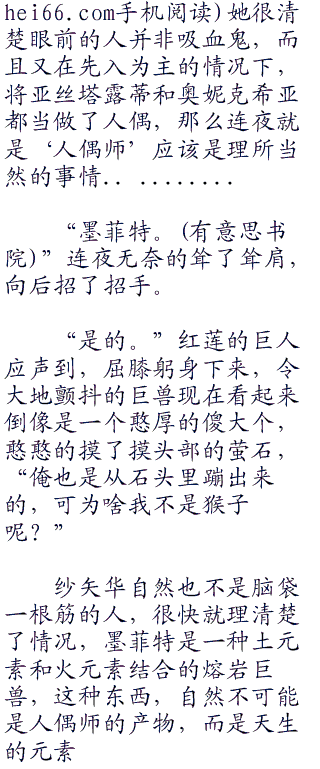 hei66.com手机阅读)她很清
楚眼前的人并非吸血鬼，而
且又在先入为主的情况下，
将亚丝塔露蒂和奥妮克希亚
都当做了人偶，那么连夜就
是‘人偶师’应该是理所当
然的事情.. ........
“墨菲特。(有意思书
院)”连夜无奈的耸了耸肩，
向后招了招手。
“是的。”红莲的巨人
应声到，屈膝躬身下来，令
大地颤抖的巨兽现在看起来
倒像是一个憨厚的傻大个，
憨憨的摸了摸头部的萤石，
“俺也是从石头里蹦出来
的，可为啥我不是猴子
呢？”
纱矢华自然也不是脑袋
一根筋的人，很快就理清楚
了情况，墨菲特是一种土元
素和火元素结合的熔岩巨
兽，这种东西，自然不可能
是人偶师的产物，而是天生
的元素